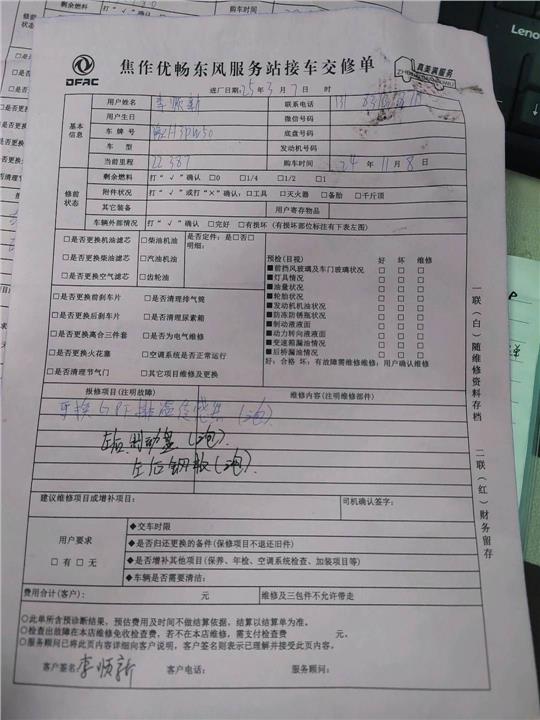 剩余燃料 打“√”
Lenovo
DFAC
焦作优畅东风服务站接车交修单
真美满服务
进厂日期: 25 年 3 月 7 日 时
基本信息
用户姓名 李顺新 联系电话
用户生日 微信号码
车牌号 底盘号码
车型 发动机号码
当前里程 22387 购车时间 24 年 11 月 8 日
修前状态
剩余燃料 打“√”确认 □0 □1/4 □1/2 □1
附件状况 打“√”或打“×”确认: □工具 □灭火器 □备胎 □千斤顶
其它装备 用户寄存物品
车辆外部情况 打“√”确认 □完好 □有损坏 (有损坏部位标注有下表左图)
□是否更换机油滤芯 □柴油机油 是否定件: 是□否□
明细:
□是否更换柴油滤芯 □汽油机油
□是否更换空气滤芯 □齿轮油
□是否更换前刹车片 □是否清理排气筒
□是否更换后刹车片 □是否清理尿素箱
□是否更换离合三件套 □是否为电气维修
□是否更换火花塞 □空调系统是否正常运行
□是否清理节气门 □其它项目维修及更换
预检(目视) 好 坏 维修
■前挡风玻璃及车门玻璃状况 □ □ □
■灯具情况 □ □ □
■油量状况 □ □ □
■轮胎状况 □ □ □
■发动机机油状况 □ □ □
■防冻防锈瓶状况 □ □ □
■制动液液面 □ □ □
■动力转向液液面 □ □ □
■变速箱漏油情况 □ □ □
■后桥漏油情况 □ □ □
好: 合格 坏: 有故障需维修维修: 用户确认维修
报修项目(注明故障) 维修内容(注明维修部件)
更换GPF排温传感器
左后制动盘
左后钢板
建议维修项目或增补项目: 司机确认签字:
用户要求
□有 □无
◆交车时限
◆是否归还更换的备件(保修项目不退还旧件)
◆是否增补其他项目(保养、年检、空调系统检查、加装项目等)
◆车辆是否需要清洁:
费用合计(客户): 元 维修及三包件不允许带走
○此单所含预诊断结果, 预估费用及时间不做结算依据, 结算以结算单为准。
○检查出故障在本店维修免收检查费, 若不在本店维修, 需支付检查费 元。
○服务顾问已将此页内容详细向客户说明, 客户签名则表示已理解并接受此页内容。
客户签名 李顺新 客户电话: 服务顾问:
一联(白)随维修资料存档 二联(红)财务留存